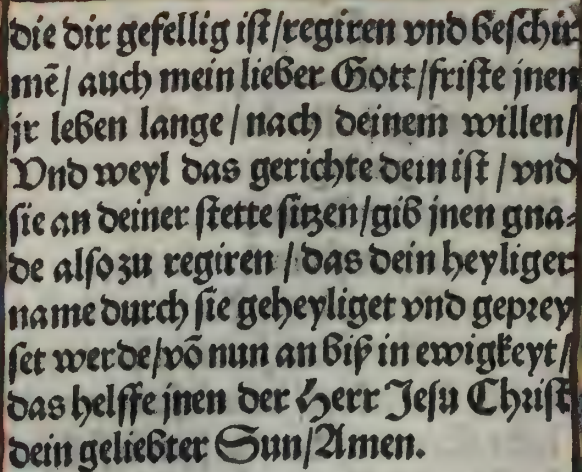 die dir gefellig iſt/regiren vnd beſchir⸗
mē/ auch mein lieber Gott/friſte jnen
jr leben lange/nach deinem willen/
Vnd weyl das gerichte dein iſt/vnd
ſie an deiner ſtette ſitzen/gib jnen gna⸗
de alſo zu regiren/das dein heyliger
name durch ſie geheyliget vnd geprey
ſet werde/vō nun an biß in ewigkeyt/
das helffe jnen der Herr Jeſu Chriſt
dein geliebter Sun/Amen.